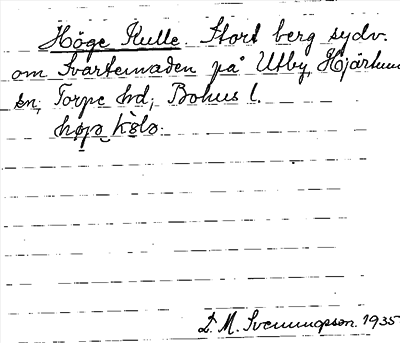 Höge Kulle. Stort berg sydv.
om Svartemaden på Utby, Hjärtum
sn, Torpe hd, Bohus l.
høgə kɵlə.
M. Svenungsson. 1935